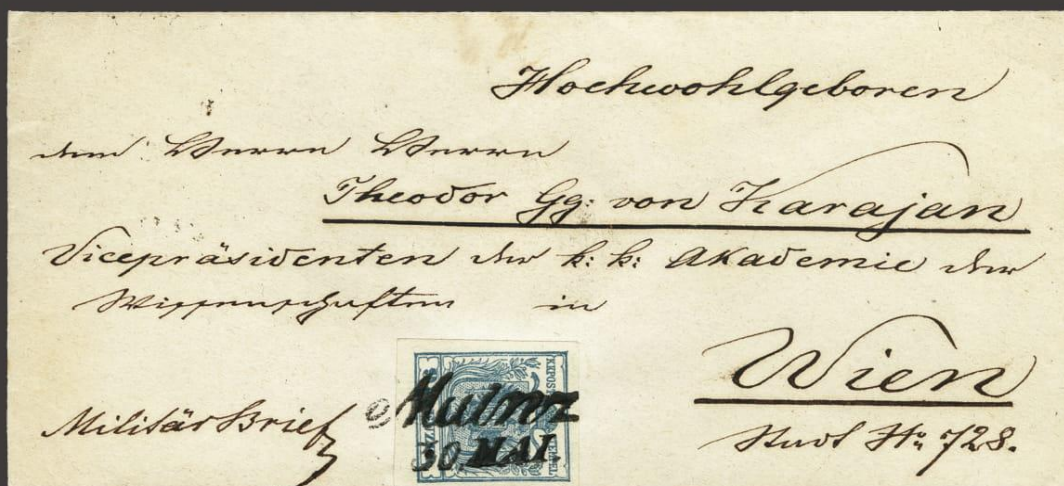 Hochwohlgeboren
dem Herrn Herrn
Theodor Gg: von Karajan
Vicepräsidenten der k: k: Akademie der
Wissenschaften in
Wien
Stadt No 728.
Militär Brief
Mainz
30. MAI.